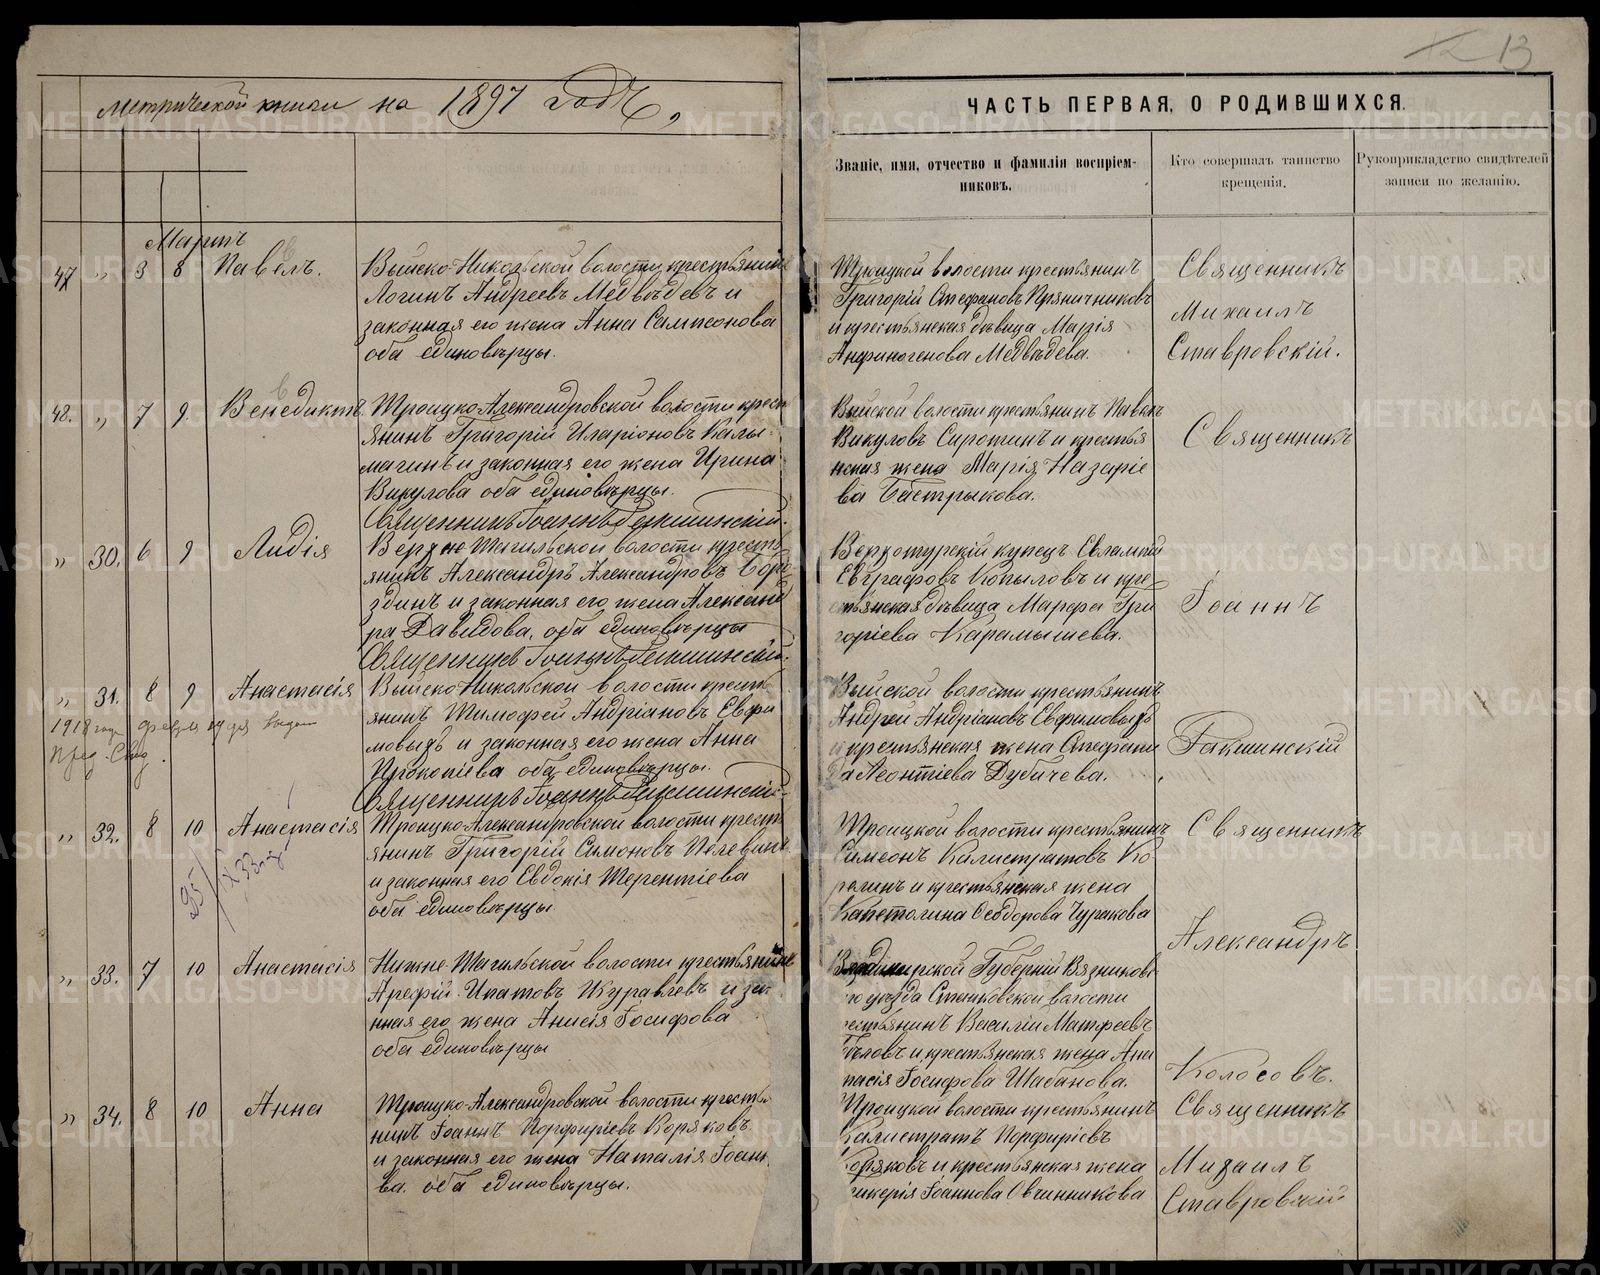 метрической книги на 1897 годъ,
13
ЧАСТЬ ПЕРВАЯ, О РОДИВШИХСЯ.
Званіе, имя, отчество и фамилія воспріем-
никовъ.
Кто совершалъ таинство
крещенія.
Рукоприкладство свидѣтелей
записи по желанію.
Мартъ
47 " 3 8 Павелъ.
Выйско-Никольской волости крестьянинъ
Логинъ Андреевъ Медвѣдевъ и
законная его жена Анна Сампсонова
оба единовѣрцы.
Троицкой волости крестьянинъ
Григорій Стефановъ Пряничниковъ
и крестьянская дѣвица Марія
Анфиногенова Медвѣдева.
Священникъ
Михаилъ
Ставровскій.
48. " 7 9. Венедиктъ
Троицко-Александровской волости крест
янинъ Григорій Иларіоновъ Калы-
магинъ и законная его жена Ирина
Викулова оба единовѣрцы.
Священникъ Іоаннъ Гакшинскій.
Выйской волости крестьянинъ Павелъ
Викуловъ Сиротинъ и крестья
нская жена Марія Назаріе
ва Бастрыкова.
Священникъ
" 30. 6 9 Лидія
Верхне-Тагильской волости кресть
янинъ Александръ Александровъ Боро
здинъ и законная его жена Александ
ра Давидова, оба единовѣрцы
Священникъ Іоаннъ Гакшинскій.
Верхотурскій купецъ Евлампій
Евграфовъ Копыловъ и кре-
стьянская дѣвица Марфа Гри
горіева Карамышева.
Іоаннъ
" 31. 8 9 Анастасія
1918 года февраля 19 дня выдан
Выйско-Никольской волости кресть
янинъ Тимофей Андріановъ Евфи
мовыхъ и законная его жена Анна
Прокопіева оба единовѣрцы.
Священникъ Іоаннъ Гакшинскій.
Выйской волости крестьянинъ
Андрей Андріановъ Евфимовыхъ
и крестьянская жена Стефани
да Леонтіева Дубичева.
Гакшинскій
" 32. 8 10 Анастасія
Троицко-Александровской волости кресть
янинъ Григорій Симоновъ Пелевинъ
и законная его Евдокія Терентіева
оба единовѣрцы
Троицкой волости крестьянинъ
Симеонъ Калистратовъ Ко
ролинъ и крестьянская жена
Капетолина Ѳеодорова Чуракова
Священникъ
Александръ
" 33. 7 10 Анастасія
Нижне-Тагильской волости крестьянинъ
Арефій Ипатовъ Журавлевъ и зако
нная его жена Анисія Іосифова
оба единовѣрцы
Владимирской Губерніи Вязниковс
го уѣзда Станковской волости
рестьянинъ Василій Матфеевъ
и крестьянская жена Ана
тасія Іосифова Шабанова.
Колосовъ.
" 34. 8 10 Анна
Троицко-Александровской волости кресть
нинъ Іоаннъ Порфиріевъ Коряковъ
и законная его жена Наталія Іоанн
ва. оба единовѣрцы.
Троицкой волости крестьянинъ
Калистратъ Порфиріевъ
Коряковъ и крестьянская жена
икерія Іоаннова Овчинникова
Священникъ
Михаилъ
Ставровскій
METRIKI.GASO-URAL.RU